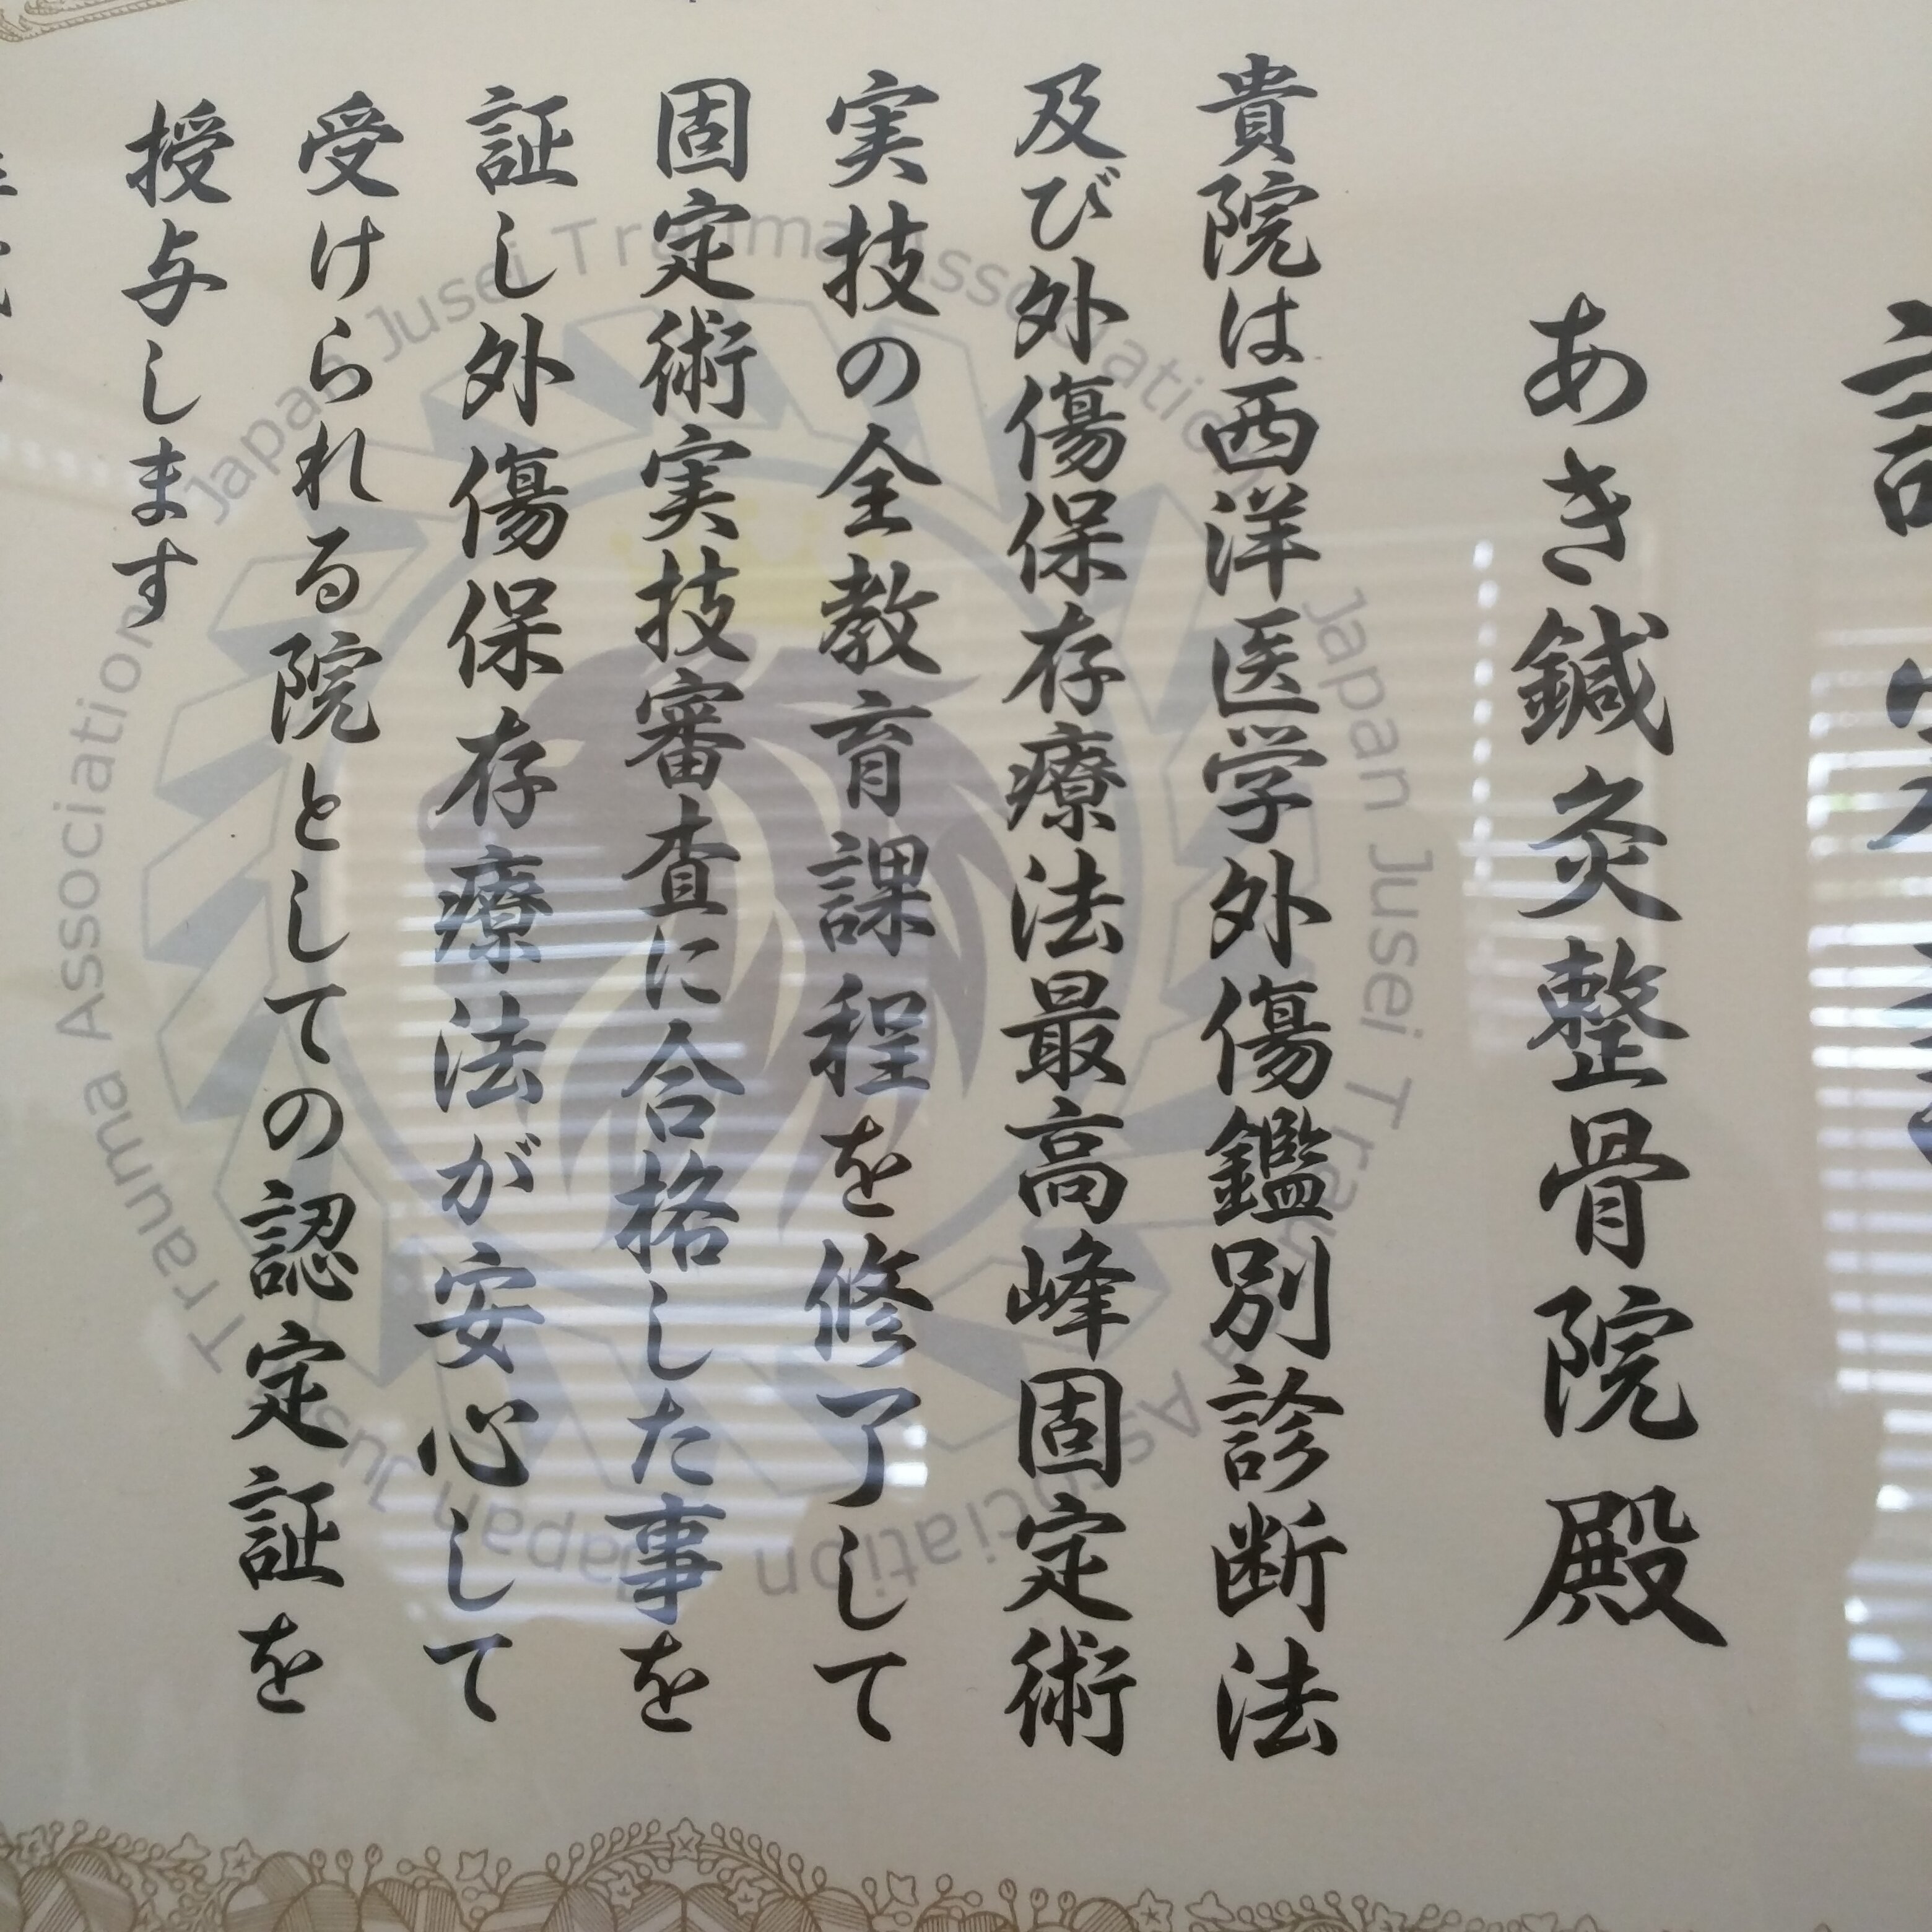 あき鍼灸整骨院 殿
貴院は西洋医学外傷鑑別診断法
及び外傷保存療法最高峰固定術
実技の全教育課程を修了して
固定術実技審査に合格した事を
証し外傷保存療法が安心して
受けられる院としての認定証を
授与します
Japan Jusei Trauma Association
Japan Jusei Trauma Association
Japan Jusei Trauma Association